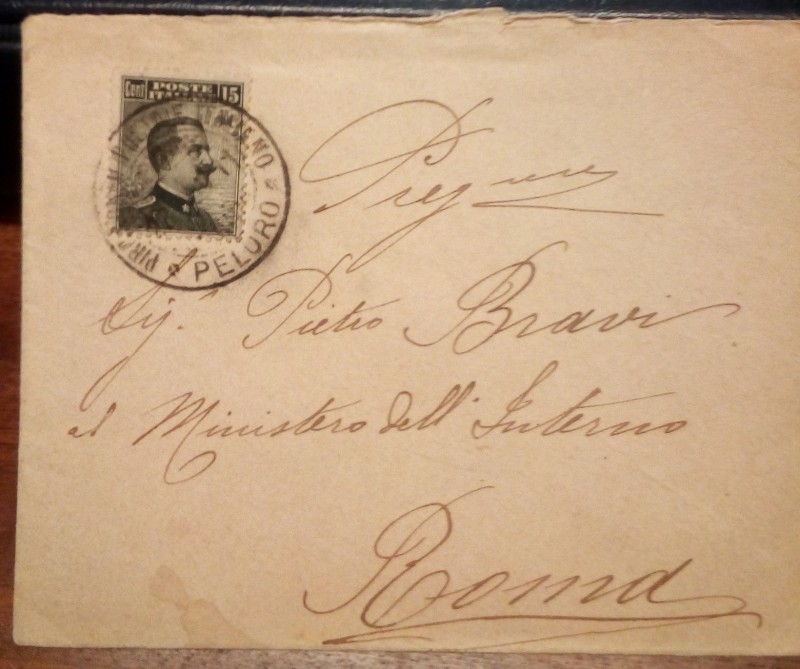 Cent POSTE ITALIANE 15
PIROSCAFO ITALIANO * PELORO *
Preg.mo
Sig.r Pietro Bravi
al Ministero dell'Interno
Roma